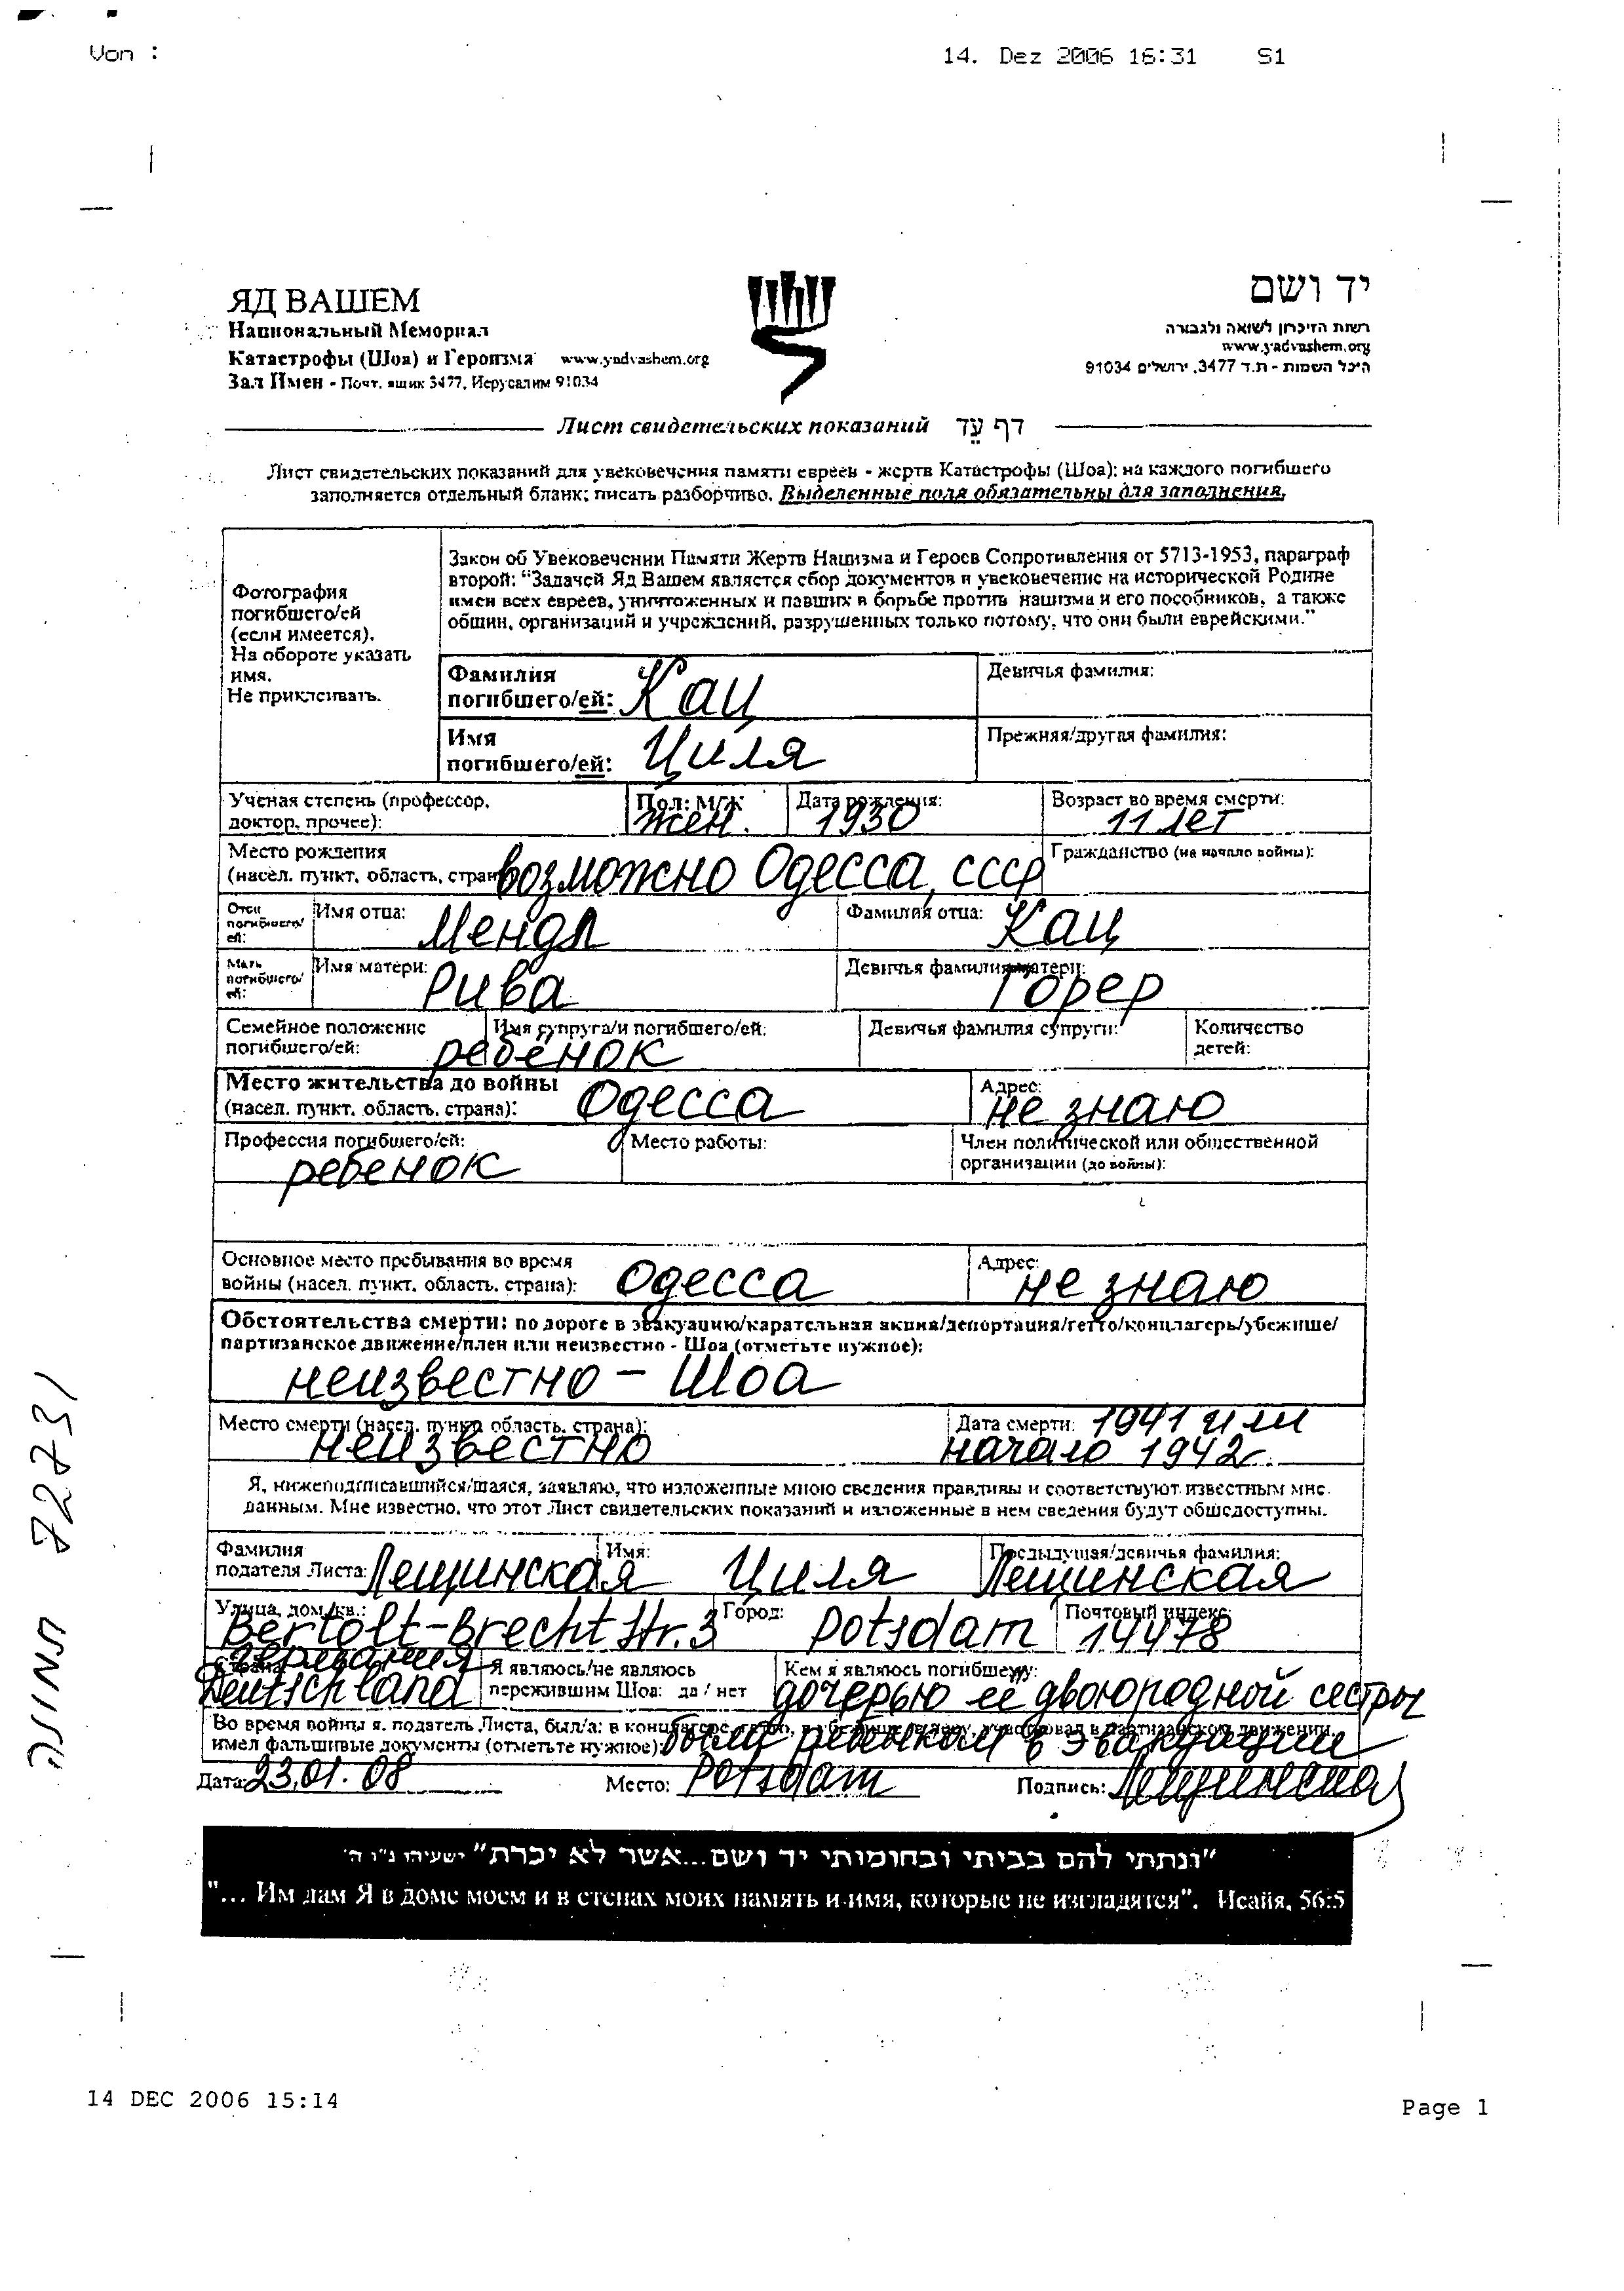 Von :
14. Dez 2006 16:31 S1
ЯД ВАШЕМ
Национальный Мемориал
Катастрофы (Шоа) и Героизма www.yadvashem.org
Зал Имен - Почт. ящик 3477, Иерусалим 91034
יד ושם
רשות הזיכרון לשואה ולגבורה
www.yadvashem.org
היכל השמות - ת.ד 3477, ירושלים 91034
Лист свидетельских показаний דף עֵד
Лист свидетельских показаний для увековечения памяти евреев - жертв Катастрофы (Шоа); на каждого погибшего
заполняется отдельный бланк; писать разборчиво. Выделенные поля обязательны для заполнения.
Фотография
погибшего/ей
(если имеется).
На обороте указать
имя.
Не приклеивать.
Закон об Увековечении Памяти Жертв Нацизма и Героев Сопротивления от 5713-1953, параграф
второй: "Задачей Яд Вашем является сбор документов и увековечение на исторической Родине
имен всех евреев, уничтоженных и павших в борьбе против нацизма и его пособников, а также
общин, организаций и учреждений, разрушенных только потому, что они были еврейскими."
Фамилия
погибшего/ей: Кац
Девичья фамилия:
Имя
погибшего/ей: Циля
Прежняя/другая фамилия:
Ученая степень (профессор,
доктор, прочее):
Пол: М/Ж жен.
Дата рождения: 1930
Возраст во время смерти: 11 лет
Место рождения
(насел. пункт, область, страна возможно Одесса, СССР
Гражданство (на начало войны):
Отец
погибшего/
ей:
Имя отца: Мендл
Фамилия отца: Кац
Мать
погибшего/
ей:
Имя матери: Рива
Девичья фамилия матери: Горер
Семейное положение
погибшего/ей: ребёнок
Имя супруга/и погибшего/ей:
Девичья фамилия супруги:
Количество
детей:
Место жительства до войны
(насел. пункт, область, страна): Одесса
Адрес: не знаю
Профессия погибшего/ей: ребенок
Место работы:
Член политической или общественной
организации (до войны):
Основное место пребывания во время
войны (насел. пункт, область, страна): Одесса
Адрес: не знаю
Обстоятельства смерти: по дороге в эвакуацию/карательная акция/депортация/гетто/концлагерь/убежище/
партизанское движение/плен или неизвестно - Шоа (отметьте нужное):
неизвестно - Шоа
Место смерти (насел. пункт, область, страна): неизвестно
Дата смерти: 1941 или
начало 1942г.
Я, нижеподписавшийся/шаяся, заявляю, что изложенные мною сведения правдивы и соответствуют известным мне
данным. Мне известно, что этот Лист свидетельских показаний и изложенные в нем сведения будут общедоступны.
Фамилия
подателя Листа: Лещинская
Имя: Циля
Предыдущая/девичья фамилия: Лещинская
Улица, дом, кв.: Bertolt-Brecht Str. 3
Город: Potsdam
Почтовый индекс: 14478
Страна: Германия
Deutschland
Я являюсь/не являюсь
пережившим Шоа: да / нет
Кем я являюсь погибшему: дочерью её двоюродной сестры
Во время войны я, податель Листа, был/а: в концлагере, гетто, в убежище, в лесу, участвовал в партизанском движении,
имел фальшивые документы (отметьте нужное): была ребёнком в эвакуации
Дата: 23.01.08 Место: Potsdam Подпись: Лещинская
"ונתתי להם בביתי ובחומותי יד ושם...אשר לא יכרת" ישעיהו נ"ו ה'
"... Им дам Я в доме моем и в стенах моих память и имя, которые не изгладятся". Исайя, 56:5
תמונה 72231
14 DEC 2006 15:14
Page 1